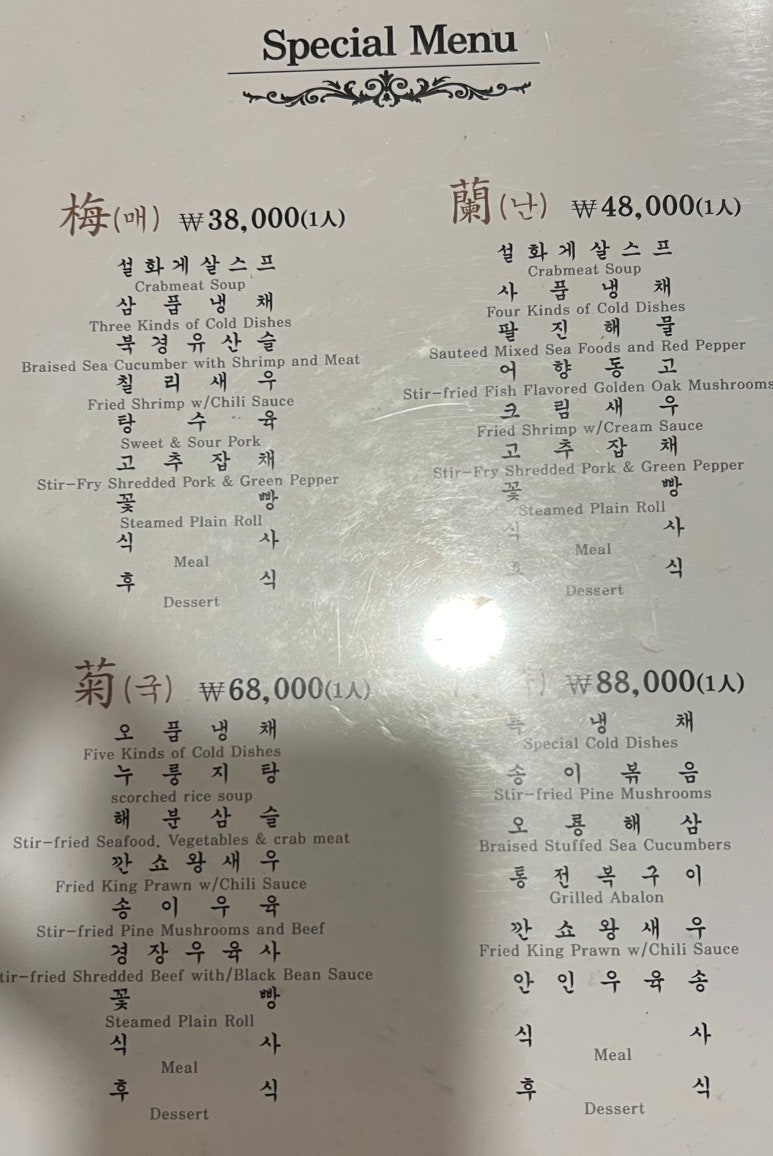 Special Menu
梅(매) ₩38,000(1人)
설화게살스프
Crabmeat Soup
삼품냉채
Three Kinds of Cold Dishes
북경유산슬
Braised Sea Cucumber with Shrimp and Meat
칠리새우
Fried Shrimp w/Chili Sauce
탕수육
Sweet & Sour Pork
고추잡채
Stir-Fry Shredded Pork & Green Pepper
꽃빵
Steamed Plain Roll
식사
Meal
후식
Dessert
蘭(난) ₩48,000(1人)
설화게살스프
Crabmeat Soup
사품냉채
Four Kinds of Cold Dishes
팔진해물
Sauteed Mixed Sea Foods and Red Pepper
어향동고
Stir-fried Fish Flavored Golden Oak Mushrooms
크림새우
Fried Shrimp w/Cream Sauce
고추잡채
Stir-Fry Shredded Pork & Green Pepper
꽃빵
Steamed Plain Roll
식사
Meal
식
Dessert
菊(국) ₩68,000(1人)
오품냉채
Five Kinds of Cold Dishes
누룽지탕
scorched rice soup
해분삼슬
Stir-fried Seafood, Vegetables & crab meat
깐쇼왕새우
Fried King Prawn w/Chili Sauce
송이우육
Stir-fried Pine Mushrooms and Beef
경장우육사
tir-fried Shredded Beef with/Black Bean Sauce
꽃빵
Steamed Plain Roll
식사
Meal
후식
Dessert
₩88,000(1人)
특냉채
Special Cold Dishes
송이볶음
Stir-fried Pine Mushrooms
오룡해삼
Braised Stuffed Sea Cucumbers
통전복구이
Grilled Abalon
깐쇼왕새우
Fried King Prawn w/Chili Sauce
안인우육송
식사
Meal
후식
Dessert